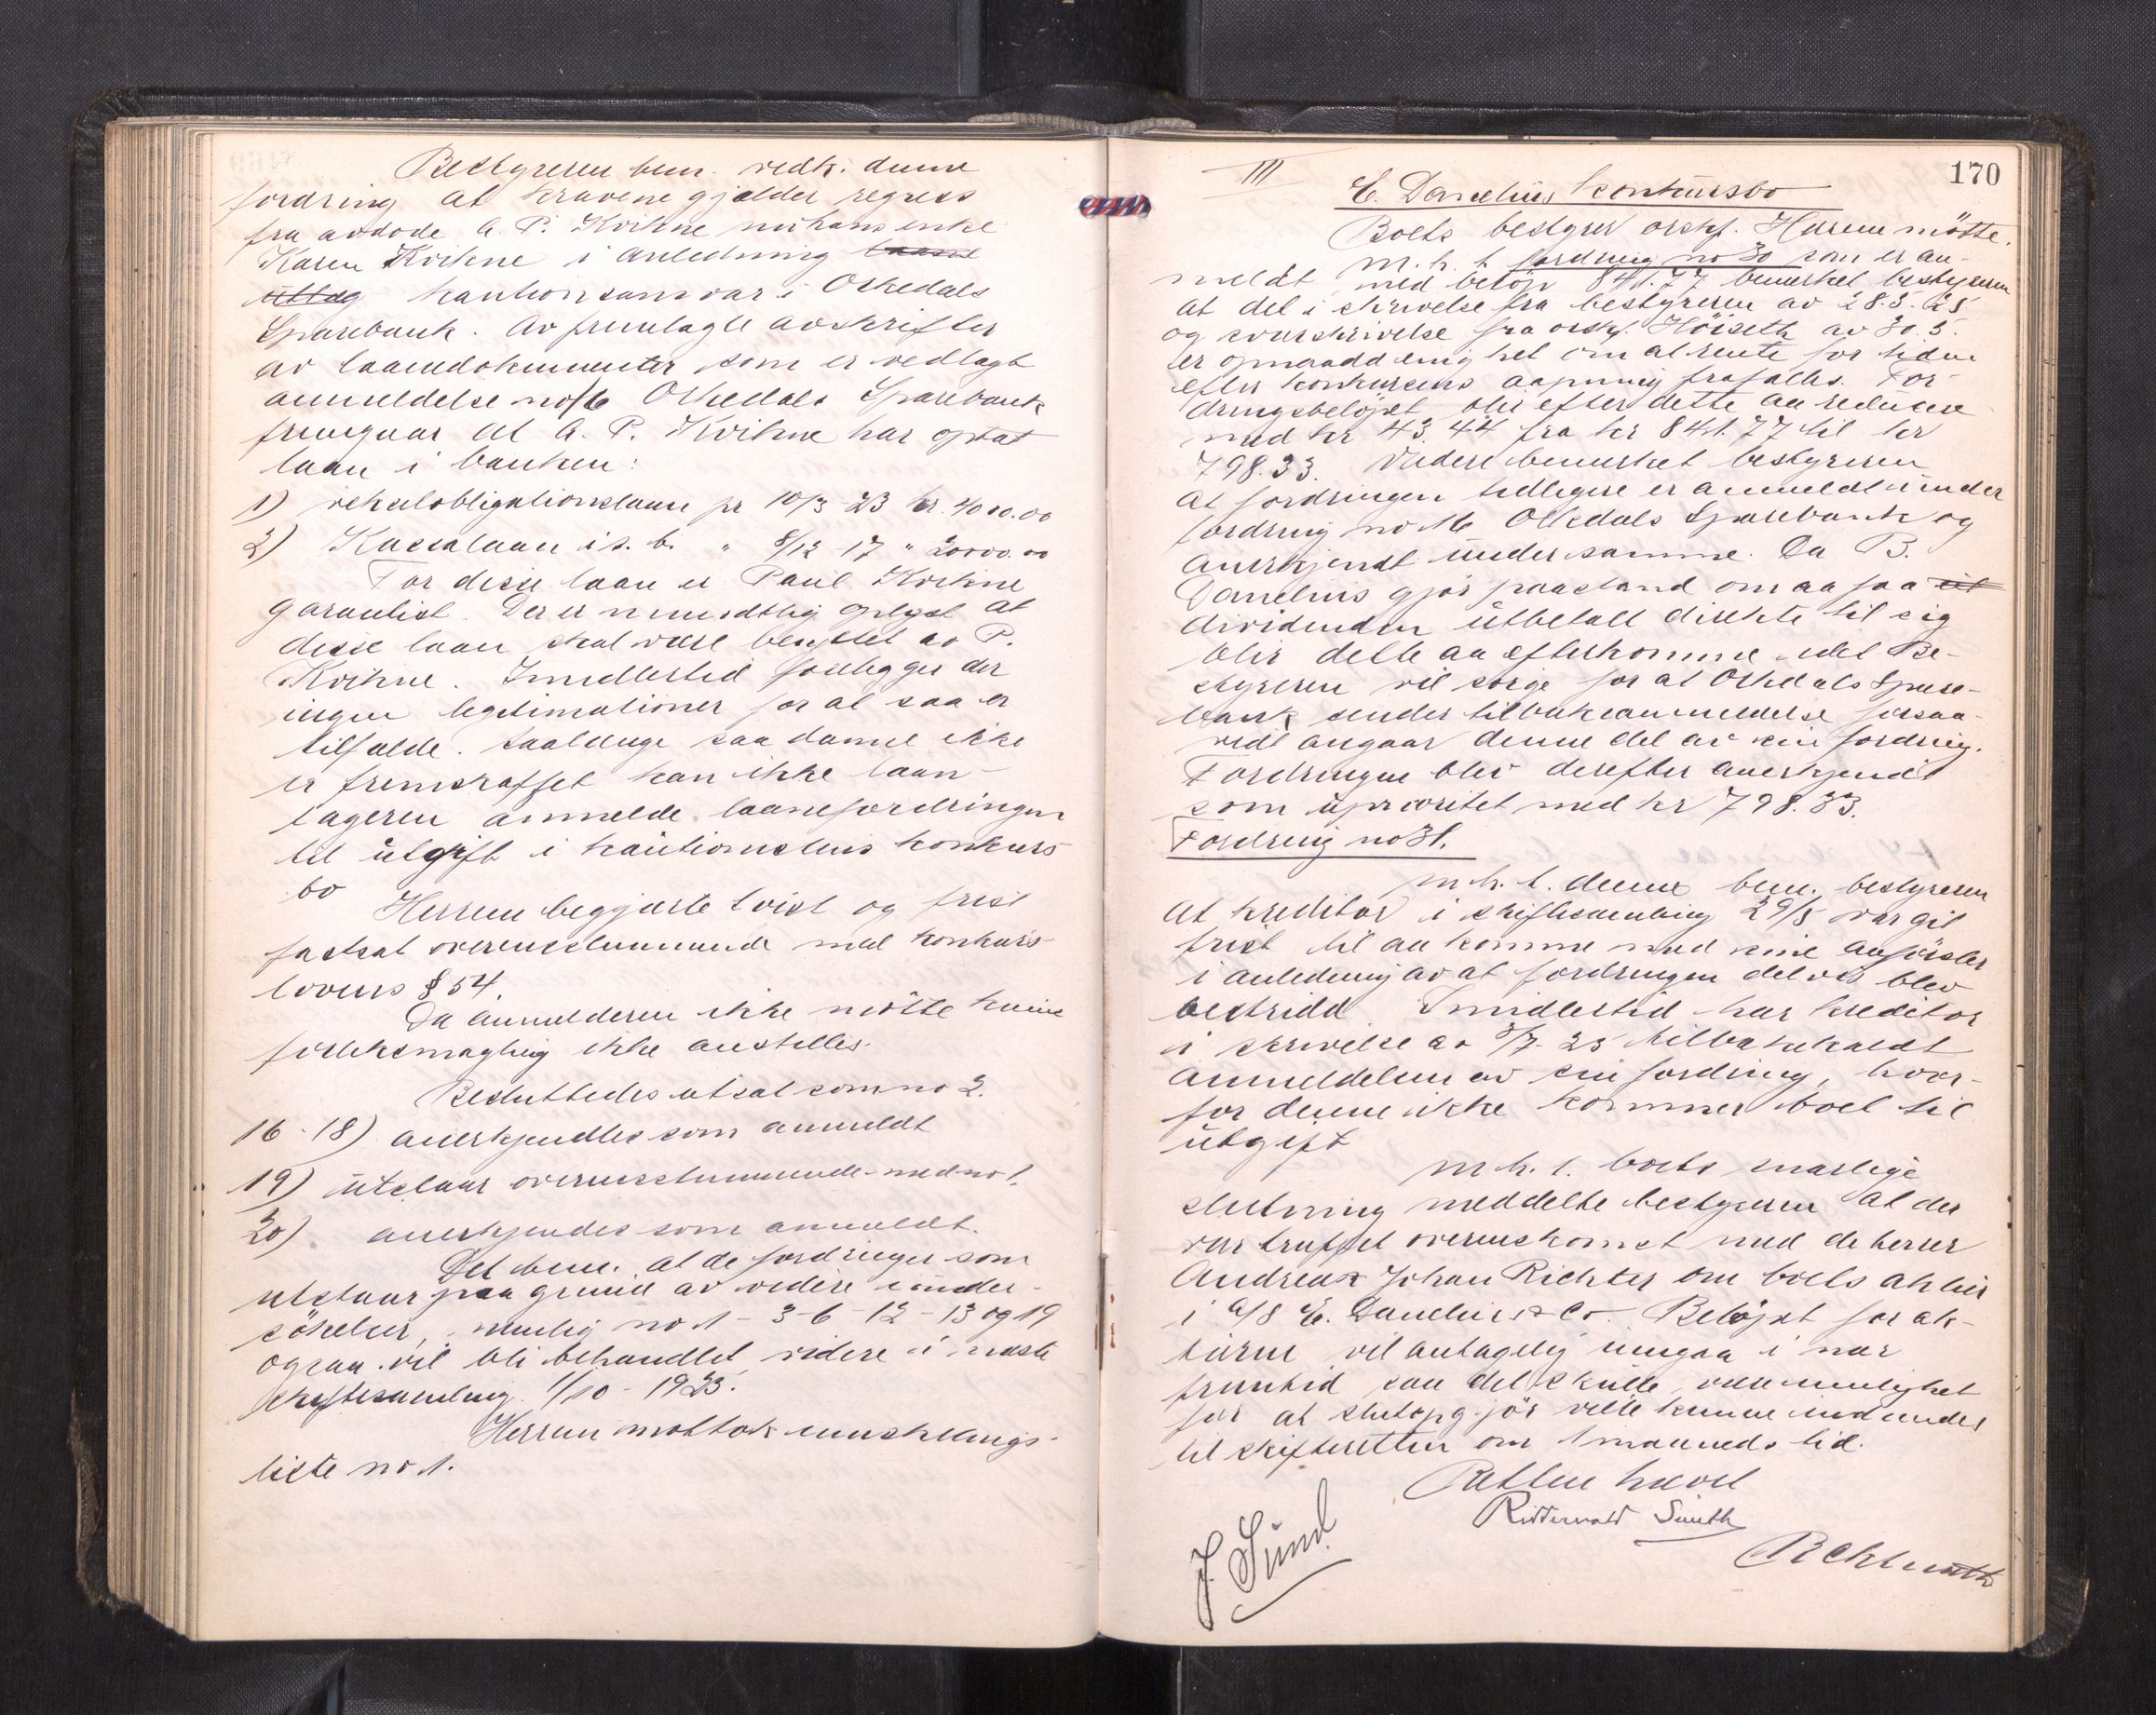 Bestyreren bem. vedk. denne
fordring at kravene gjælder regress
fra avdøde A. P. Kvikne nu hans enke
Karen Kvikne i anledning laane
uttag kautionsansvar i Orkedals
Sparebank. Av fremlagte avskrifter
av laanedokumenter som er vedlagt
anmeldelse no 16 Orkedals Sparebank
fremgaar at A. P. Kvikne har optat
laan i banken:
1) vekselobligationslaan pr 10/3 - 23 kr. 4000.00
2) Kassalaan i s. b. " 8/12 - 17 " 20000.00
For disse laan er Paul Kvikne
garantist. Der er mundtlig oplyst at
disse laan skal være benyttet av P.
Kvikne. Imidlertid foreligger der
ingen legitimationer for at saa er
tilfælde. Saalænge saadanne ikke
er fremskaffet kan ikke laan-
tageren anmelde laanefordringen
til utgift i kautionistens konkurs
bo
Herrem begjærte tvist og frist
fastsat overensstemmende med konkurs-
lovens § 54.
Da anmelderen ikke møtte kunne
forliksmægling ikke anstilles.
Besluttedes utsat som no 2.
16 - 18) anerkjendtes som anmeldt
19) utstaar overensstemmende med no 1.
20) anerkjendes som anmeldt.
Det bem. at de fordringer som
utstaar paa grund av videre under-
søkelser, nemlig no 1 - 3 - 6 - 12 - 13 og 19
ogsaa vil bli behandlet videre i næste
skiftesamling 1/10 - 1925.
Herrem mottok innstillings-
liste no 1.
III
170
E. Danelius konkursbo
Boets bestyrer orskf. Herrem møtte.
M. h. t. fordring no 30 som er an-
meldt med beløp 841.77 bemerket bestyreren
at det i skrivelse fra bestyreren av 28.3.25
og svarskrivelse fra orskf. Höiseth av 30.5.
er opnaadd enighet om at rente for tiden
efter konkursens aapning frafalles. For-
dringsbeløpet blir efter dette aa redusere
med kr 43.44 fra kr 841.77 til kr
798.33. Videre bemerket bestyreren
at fordringen tidligere er anmeldt under
fordring no 16 Orkedals Sparebank og
anerkjendt under samme. Da B.
Danelius gjør paastand om aa faa ut
dividenden utbetalt direkte til sig
blir dette aa efterkomme idet Be-
styreren vil sørge for at Orkedals Spare-
bank sender tilbakeanmeldelse forsaa-
vidt angaar denne del av sin fordring.
Fordringen blev derefter anerkjendt
som uprioritet med kr 798.33.
Fordring no 31.
m. h. t. denne bem. bestyreren
at kreditor i skiftesamling 29/5 var git
frist til aa komme med sine anførsler
i anledning av at fordringen delvis blev
bestridt. Imidlertid har kreditor
i skrivelse av 8/7-25 tilbakekaldt
anmeldelsen av sin fordring, hvor-
for denne ikke kommer boet til
utgift
m. h. t. boets snarlige
slutning meddelte bestyreren at der
var truffet overenskomst med de herrer
Andreas Johan Richter om boets aktier
i A/S E. Danelius & Co. Beløpet for ak-
tierne vil antagelig inngaa i nær
fremtid saa det skulle være mulighet
for at sluttopgjør ville kunne innsendes
til skifteretten om 1 maaneds tid.
Retten hævet
Riddervold Smith
J. Sund